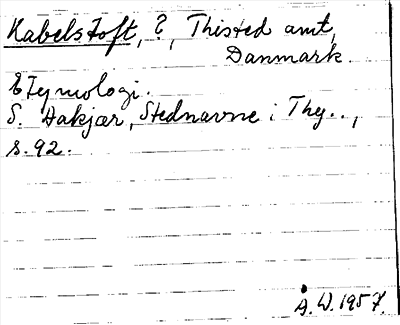 Kabelstoft, ?, Thisted amt,
Danmark.
Etymologi.
S. Aakjær, Stednavne i Thy..,
s. 92.
A.W. 1957.